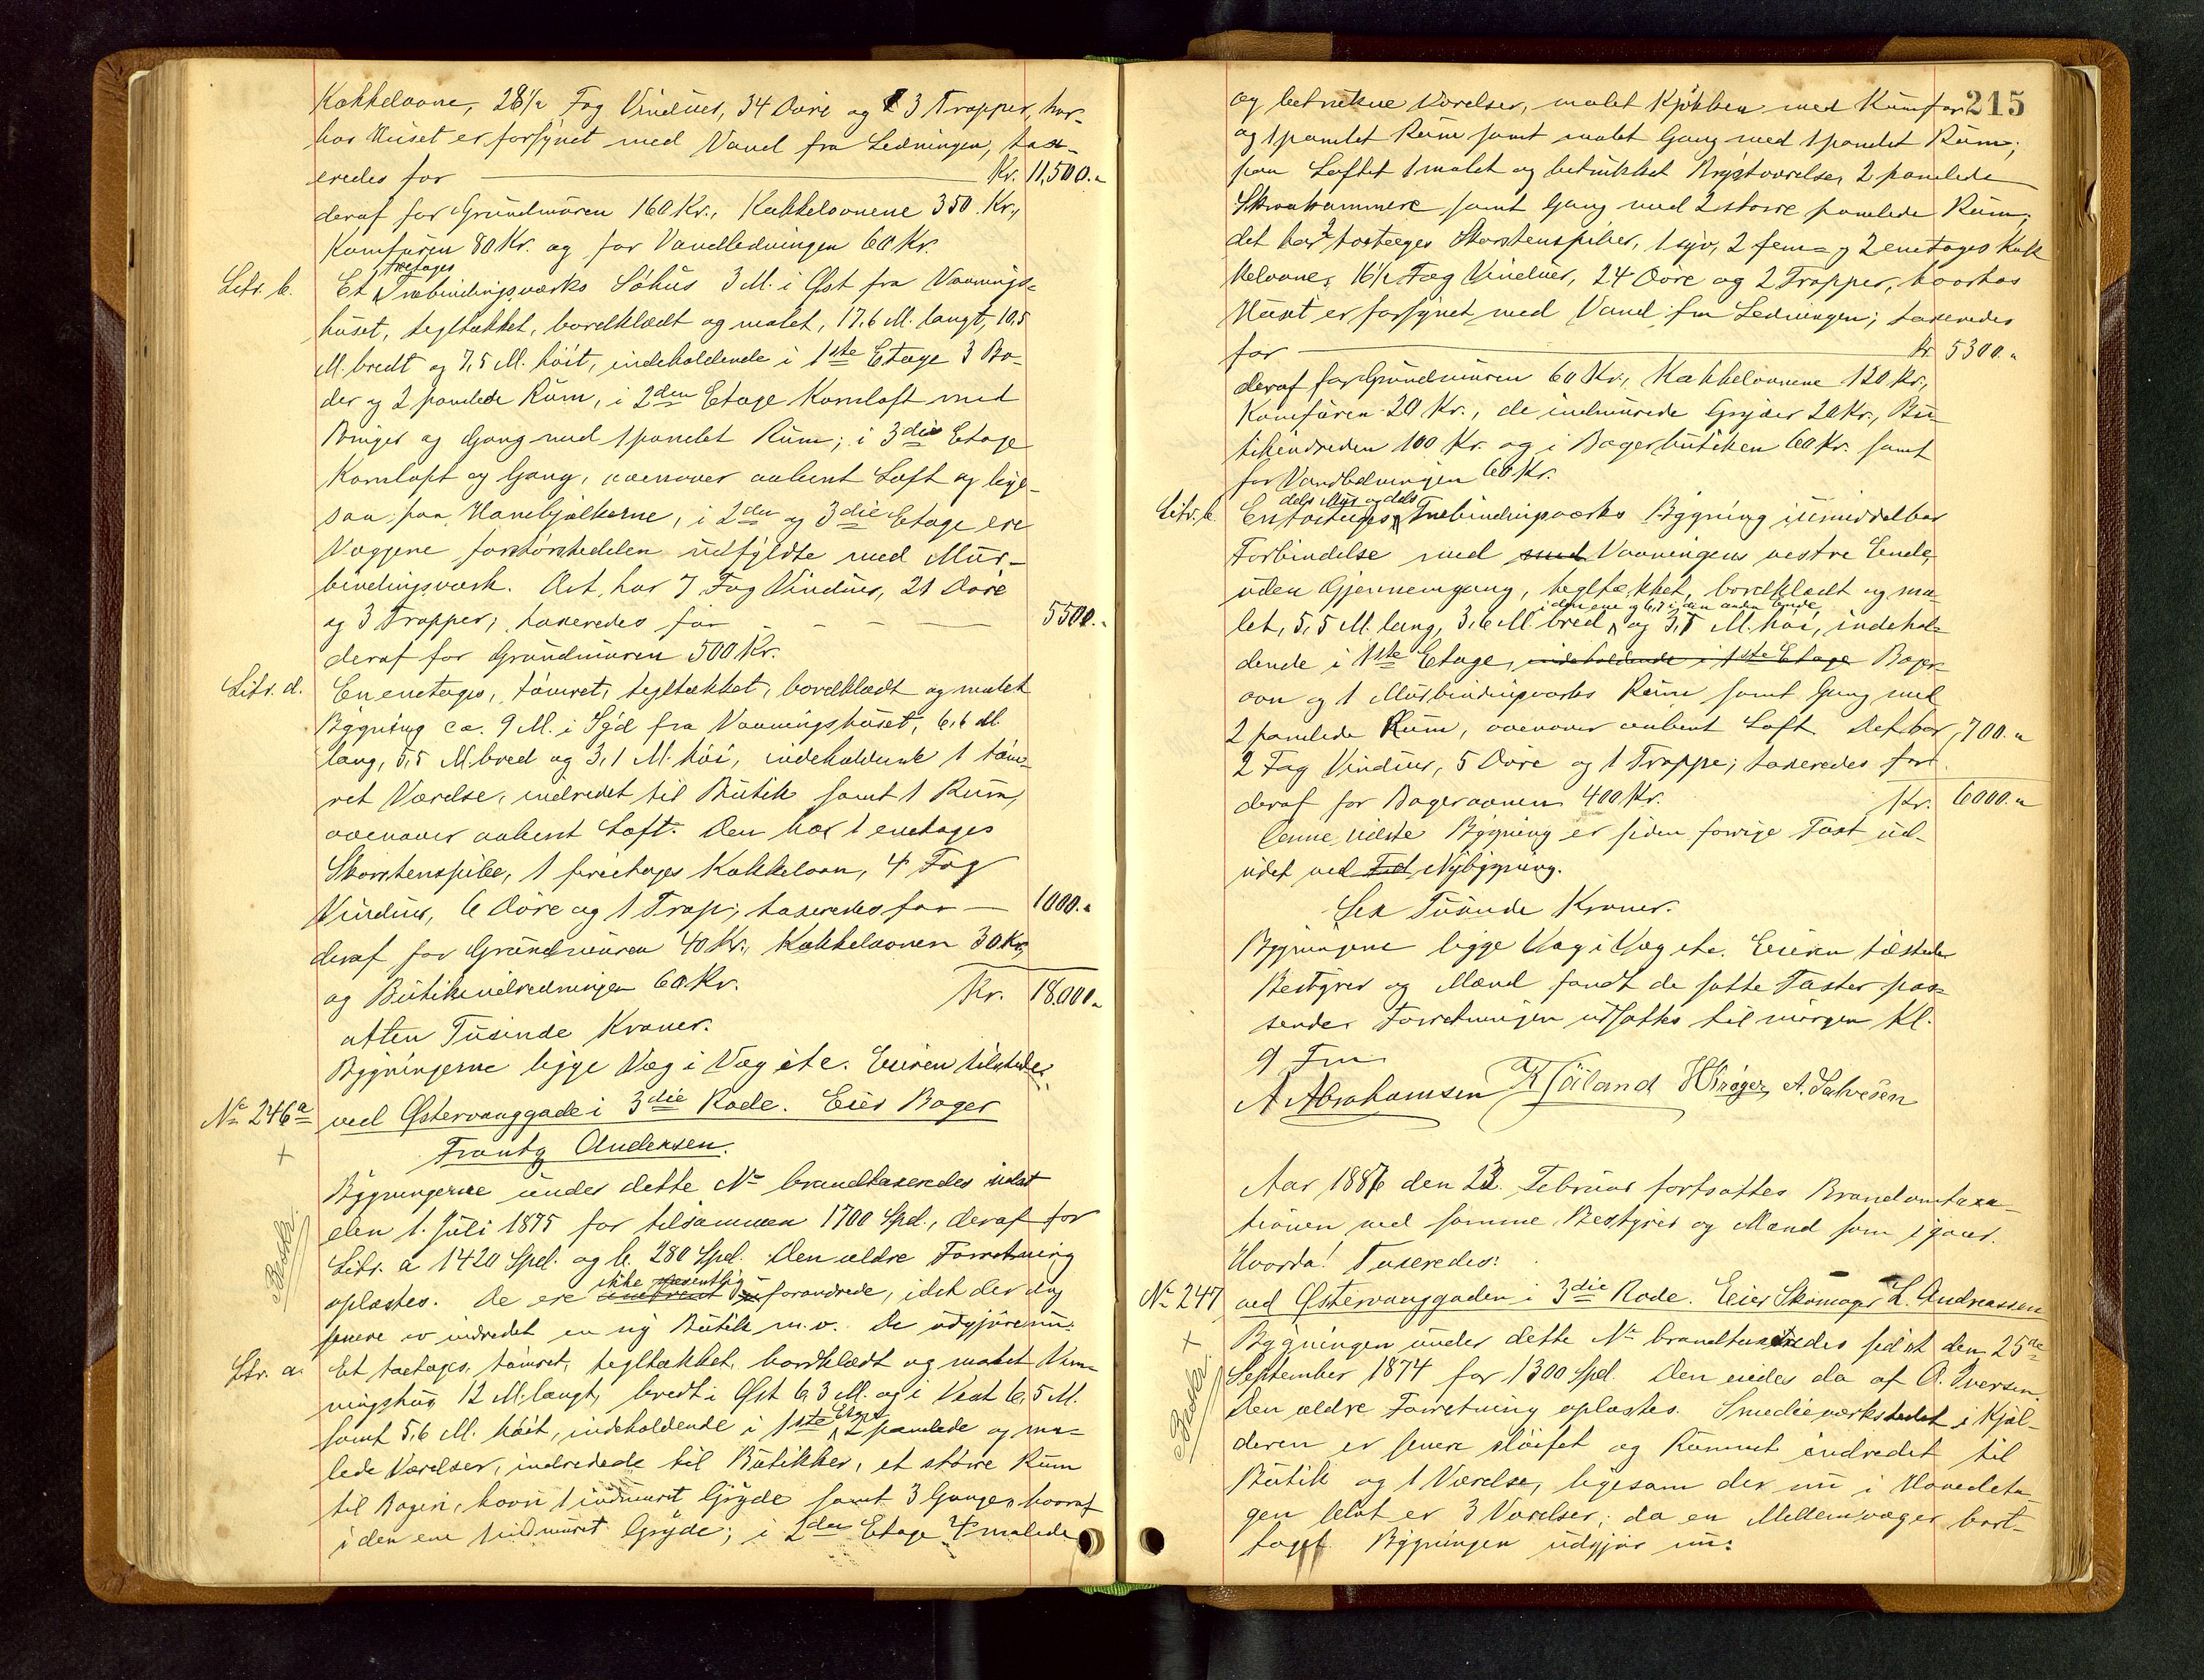 Kakkelovne, 28½ Fag Vinduer, 34 Døre og 3 Trapper, hvor-
hos Huset er forsynet med Vand fra Ledningen, tax-
eredes for — Kr. 11,500.„
deraf for Grundmuren 160 Kr., Kakkelovnene 350 Kr.,
Komfuren 80 Kr. og for Vandledningen 60 Kr.
Litr. b. Et tretages Træbindingsværks Søhus 3 M. i Øst fra Vaanings-
huset, tegltækket, bordklædt og malet, 17,6 M. langt, 10,5
M. bredt og 7,5 M. høit, indeholdende i 1ste Etage 3 Bo-
der og 2 panelede Rum, i 2den Etage Kornloft med
Binger og Gang med 1 panelet Rum; i 3die Etage
Kornloft og Gang, ovenover aabent Loft og lige-
saa paa Hanebjelkerne, i 2den og 3die Etage ere
Væggene forstørstedelen udfyldte med Mur-
bindingsværk. Det har 7 Fag Vinduer, 21 Døre
og 3 Trapper; taxeredes for — 5500.„
deraf for Grundmuren 500 Kr.
Litr. d. En enetages, tømret, tegltækket, bordklædt og malet
Bygning ca. 9 M. i Syd fra Vaaningshuset, 6,6 M
lang, 5,5 M. bred og 3,1 M. høi, indeholdende 1 tøm-
ret Værelse, indredet til Butik samt 1 Rum,
ovenover aabent Loft. Den har 1 enetages
Skorstenspibe, 1 treetages Kakkelovn, 4 Fag
Vinduer, 6 Døre og 1 Trap; taxeredes for — 1000.„
deraf for Grundmuren 40 Kr., Kakkelovnen 30 Kr.,
og Butikindredningen 60 Kr. Kr. 18,000.„
atten Tusinde Kroner.
Bygningerne ligge Væg i Væg etc. Eieren tilstede.
No 246a ved Østervaaggade i 3die Rode. Eier Bager
Frantz Andersen.
Bygningerne under dette No brandtaxeredes sidst
den 1. Juli 1875 for tilsammen 1700 Spd., deraf for
Litr. a 1420 Spd. og b. 280 Spd. Den ældre Forretning
Beskr.
oplæstes. De ere ikke væsentlig forandrede, idet der dog
senere er indredet en ny Butik m.v. De udgjøre nu:
Litr. a. Et toetages, tømret, tegltækket, bordklædt og malet Vaa-
ningshus 12 M. langt, bredt i Øst 6,3 M. og i Vest 6,5 M.
samt 5,6 M. høit, indeholdende i 1ste Etage 2 panelede og ma-
lede Værelser, indredede til Butikker, et større Rum
til Bageri, hvori 1 indmuret Gryde samt 3 Gange, hvoraf
i den ene 1 indmuret Gryde; i 2den Etage 4 malede
215
og betrukne Værelser, malet Kjøkken med Komfur
og 1 panelet Rum samt malet Gang med 1 panelet Rum;
paa Loftet 1 malet og betrukket Kvistværelse, 2 panelede
Skraakammere samt Gang med 2 større panelede Rum;
det har 2 toetages Skorstenspiber, 1 syv, 2 fem- og 2 enetages Kak
kelovne, 16½ Fag Vinduer, 24 Døre og 2 Trapper, hvorhos
Huset er forsynet med Vand fra Ledningen; taxeredes
for — Kr. 5300.„
deraf for Grundmuren 60 Kr., Kakkelovnene 120 Kr.,
Komfuren 20 Kr., de indmurede Gryder 20 Kr., Bu-
tikindreden 100 Kr. og i Bagerbutiken 60 Kr. samt
for Vandledningen 60 Kr.
Litr. b. En toetages dels Mur og dels Træbindingsværks Bygning i umiddelbar
Forbindelse med Vaaningens vestre Ende,
uden Gjennemgang, tegltækket, bordklædt og ma-
let, 5,5 M. lang, 3,6 M. bred i den ene og 6,7 i den anden Ende og 3,5 M. høi, indehol-
dende i 1ste Etage, indeholdende i 1ste Etage Bager-
ovn og 1 Murbindingsværks Rum samt Gang med
2 panelede Rum, ovenover aabent Loft. Det har 700.„
2 Fag Vinduer, 5 Døre og 1 Trappe; taxeredes for
deraf for Bagerovnen 400 Kr. Kr. 6000.„
Denne sidste Bygning er siden forrige Taxt ud-
videt ved Nybygning.
Sex Tusinde Kroner.
Bygningerne ligge Væg i Væg etc. Eieren tilstede
Bestyrer og Mænd fandt de satte Taxter pas-
sende. Forretningen udsattes til imorgen Kl.
9 Fm
A Abrahamsen K Høiland H Krøger A. Salvesen
Aar 1886 den 23. Februar fortsattes Brandomtaxa-
tionen ved samme Bestyrer og Mænd som igaar.
Hvorda! Taxeredes:
No 247 ved Østervaaggaden i 3die Rode. Eier Skomager L. Andreassen
Bygningen under dette No brandtaxeredes sidst den 25de
September 1874 for 1300 Spd. Den eiedes da af O. Iversen.
Beskr.
Den ældre Forretning oplæstes. Smedieværkstedet i Kjæl-
deren er senere sløifet og Rummet indredet til
Butik og 1 Værelse, ligesom der nu i Hovedeta-
gen blot er 3 Værelser, da en Mellemvæg er bort-
taget. Bygningen udgjør nu: